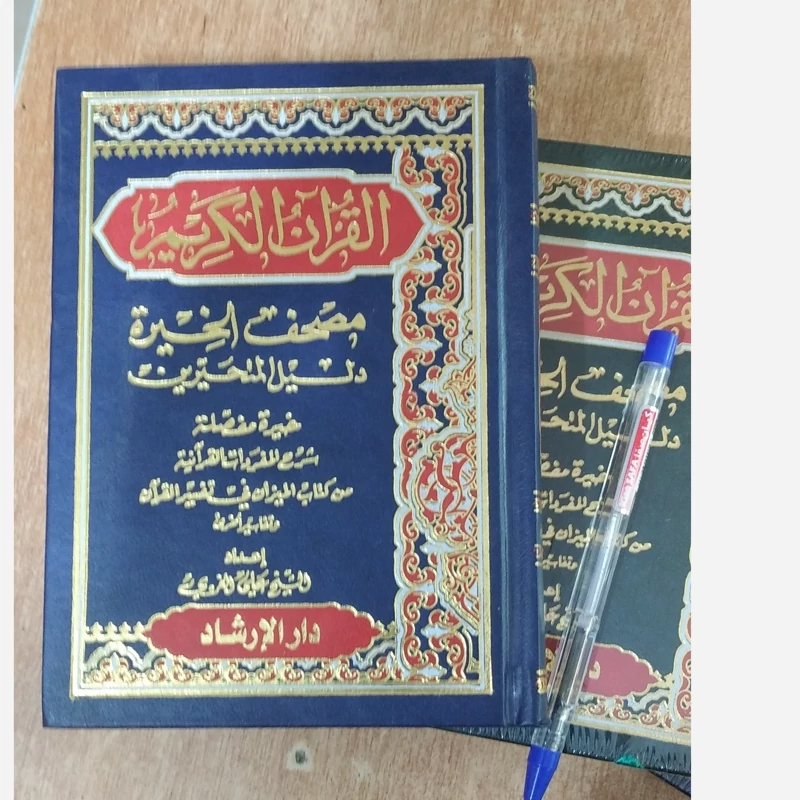 القرآن الكريم
مصحف الخيرة
دليل المتحيرين
خيرة مفصلة
شرح المفردات القرآنية
من كتاب الميزان في تفسير القرآن
وتفاسير أخرى
إعداد
الشيخ
دار الإرشاد
القرآن الكري
مصحف الخ
دليل المتح
خيرة مفص
من كتاب الميزان في